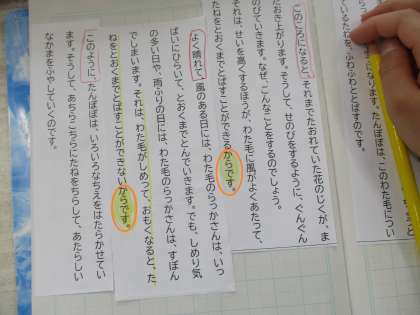 になります。たんぽぽは、このわた毛につい
ているたねを、ふわふわととばすのです。
このころになると、それまでたおれていた花のじくが、ま
たおき上がります。そうして、せのびをするように、ぐんぐん
のびていきます。なぜ、こんなことをするのでしょう。
それは、せいを高くするほうが、わた毛に風がよくあたって、
たねをとおくまでとばすことができるからです。
よく晴れて、風のある日には、わた毛のらっかさんは、いっ
ぱいにひらいて、とおくまでとんでいきます。でも、しめり気
の多い日や、雨ふりの日には、わた毛のらっかさんは、すぼん
でしまいます。それは、わた毛がしめって、おもくなると、た
ねをとおくまでとばすことができないからです。
このように、たんぽぽは、いろいろなちえをはたらかせてい
ます。そうして、あちらこちらにたねをちらして、あたらしい
なかまをふやしていくのです。